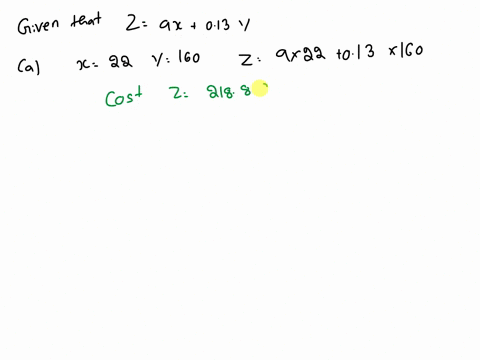 Given that Z= 9x + 0.13 y
(a) x= 22 y= 160 Z= 9x22 +0.13 x160
Cost Z= 218.8